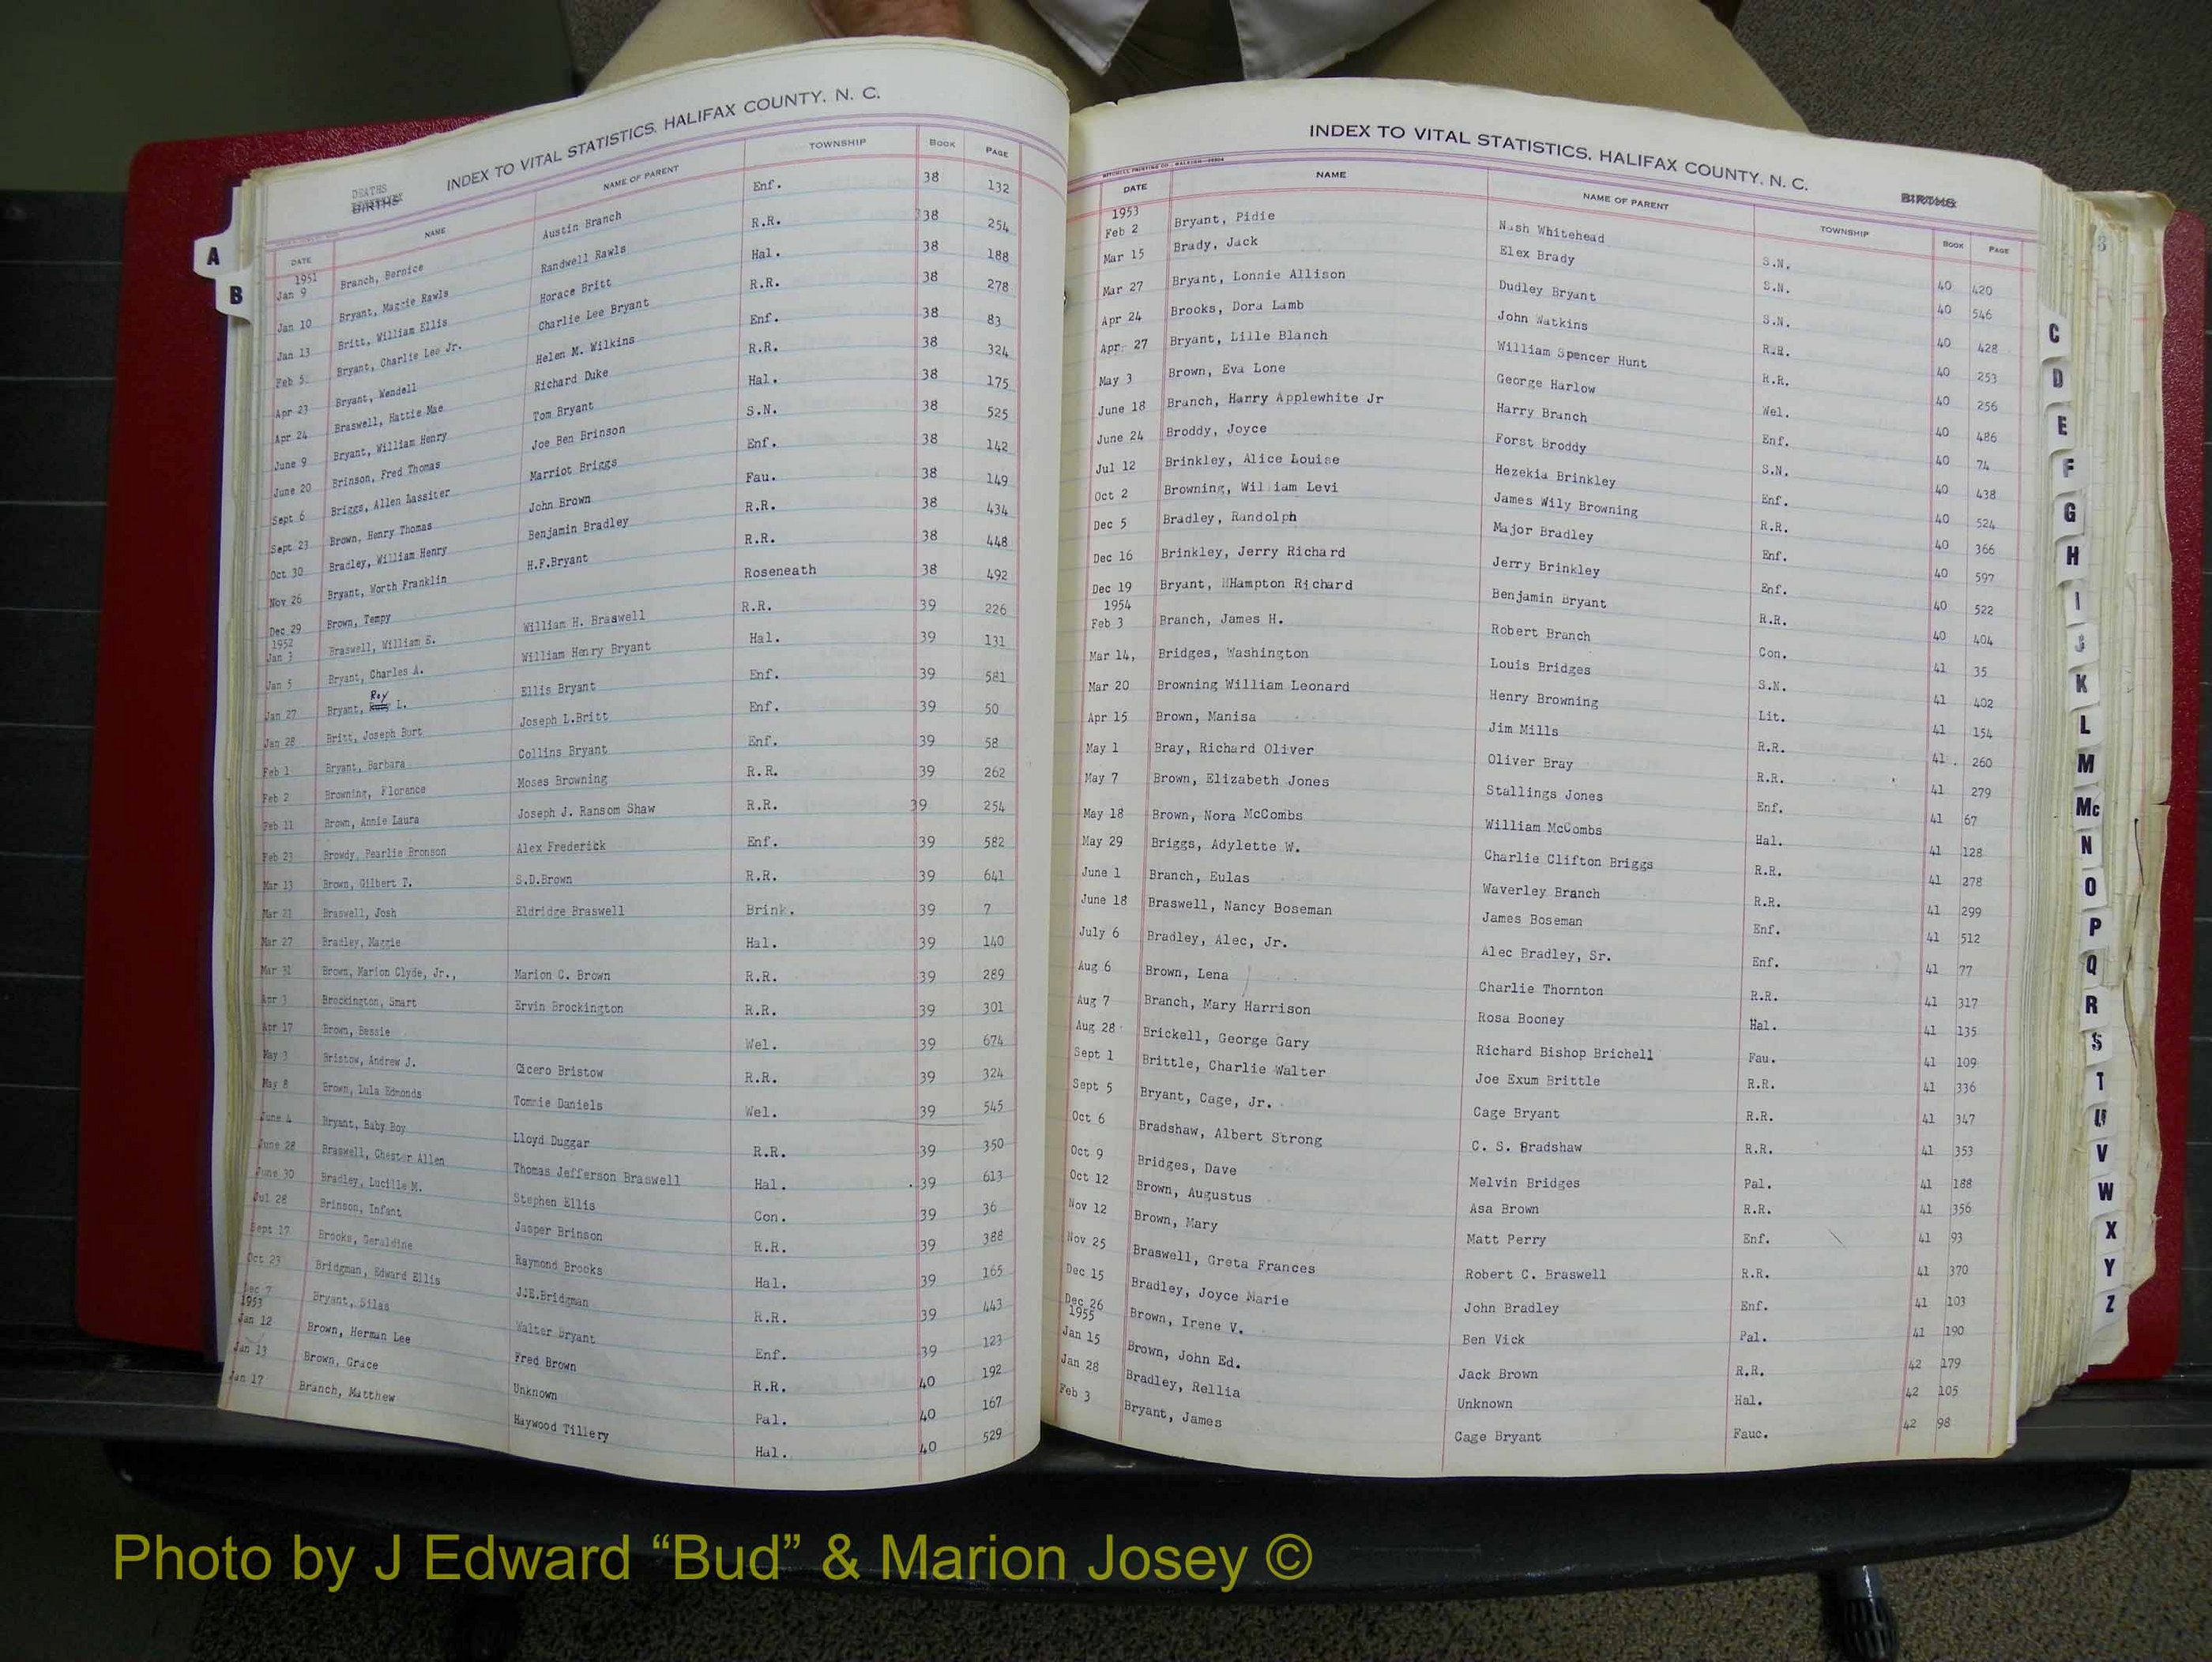 INDEX TO VITAL STATISTICS, HALIFAX COUNTY, N. C.
DEATHS
BIRTHS
DATE NAME NAME OF PARENT TOWNSHIP BOOK PAGE
1951
Jan 9 Branch, Bernice Austin Branch Enf. 38 132
Jan 10 Bryant, Maggie Rawls Randwell Rawls R.R. 38 254
Jan 13 Britt, William Ellis Horace Britt Hal. 38 188
Feb 5 Bryant, Charlie Lee Jr. Charlie Lee Bryant R.R. 38 278
Apr 23 Bryant, Wendell Helen M. Wilkins Enf. 38 83
Apr 24 Braswell, Hattie Mae Richard Duke R.R. 38 324
June 9 Bryant, William Henry Tom Bryant Hal. 38 175
June 20 Brinson, Fred Thomas Joe Ben Brinson S.N. 38 525
Sept 6 Briggs, Allen Lassiter Marriot Briggs Enf. 38 142
Sept 23 Brown, Henry Thomas John Brown Fau. 38 149
Oct 30 Bradley, William Henry Benjamin Bradley R.R. 38 434
Nov 26 Bryant, Worth Franklin H.F.Bryant R.R. 38 448
Dec 29 Brown, Tempy Roseneath 38 492
1952
Jan 3 Braswell, William S. William H. Braswell R.R. 39 226
Jan 5 Bryant, Charles A. William Henry Bryant Hal. 39 131
Jan 27 Bryant, Roy L. Ellis Bryant Enf. 39 581
Jan 28 Britt, Joseph Burt Joseph L.Britt Enf. 39 50
Feb 1 Bryant, Barbara Collins Bryant Enf. 39 58
Feb 2 Browning, Florence Moses Browning R.R. 39 262
Feb 11 Brown, Annie Laura Joseph J. Ransom Shaw R.R. 39 254
Feb 23 Browdy, Pearlie Bronson Alex Frederick Enf. 39 582
Mar 13 Brown, Gilbert T. S.D.Brown R.R. 39 641
Mar 21 Braswell, Josh Eldridge Braswell Brink. 39 7
Mar 27 Bradley, Maggie Hal. 39 140
Mar 31 Brown, Marion Clyde, Jr., Marion C. Brown R.R. 39 289
Apr 3 Brockington, Smart Ervin Brockington R.R. 39 301
Apr 17 Brown, Bessie Wel. 39 674
May 3 Bristow, Andrew J. Cicero Bristow R.R. 39 324
May 8 Brown, Lula Edmonds Tommie Daniels Wel. 39 545
June 4 Bryant, Baby Boy Lloyd Duggar R.R. 39 350
June 28 Braswell, Chester Allen Thomas Jefferson Braswell Hal. 39 613
June 30 Bradley, Lucille M. Stephen Ellis Con. 39 36
Jul 28 Brinson, Infant Jasper Brinson R.R. 39 388
Sept 17 Brooks, Geraldine Raymond Brooks Hal. 39 165
Oct 23 Bridgman, Edward Ellis J.E.Bridgman R.R. 39 443
Dec 7 Bryant, Silas Walter Bryant Enf. 39 123
1953
Jan 12 Brown, Herman Lee Fred Brown R.R. 40 192
Jan 13 Brown, Grace Unknown Pal. 40 167
Jan 17 Branch, Matthew Haywood Tillery Hal. 40 529
A
B
INDEX TO VITAL STATISTICS, HALIFAX COUNTY, N. C.
BIRTHS
DATE NAME NAME OF PARENT TOWNSHIP BOOK PAGE
1953
Feb 2 Bryant, Pidie Nash Whitehead S.N. 40 420
Mar 15 Brady, Jack Elex Brady S.N. 40 546
Mar 27 Bryant, Lonnie Allison Dudley Bryant S.N. 40 428
Apr 24 Brooks, Dora Lamb John Watkins R.R. 40 253
Apr 27 Bryant, Lille Blanch William Spencer Hunt R.R. 40 256
May 3 Brown, Eva Lone George Harlow Wel. 40 486
June 18 Branch, Harry Applewhite Jr Harry Branch Enf. 40 74
June 24 Broddy, Joyce Forst Broddy S.N. 40 438
Jul 12 Brinkley, Alice Louise Hezekia Brinkley Enf. 40 524
Oct 2 Browning, William Levi James Wily Browning R.R. 40 366
Dec 5 Bradley, Randolph Major Bradley Enf. 40 597
Dec 16 Brinkley, Jerry Richard Jerry Brinkley Enf. 40 522
Dec 19 Bryant, WHampton Richard Benjamin Bryant R.R. 40 404
1954
Feb 3 Branch, James H. Robert Branch Con. 41 35
Mar 14, Bridges, Washington Louis Bridges S.N. 41 402
Mar 20 Browning William Leonard Henry Browning Lit. 41 154
Apr 15 Brown, Manisa Jim Mills R.R. 41 260
May 1 Bray, Richard Oliver Oliver Bray R.R. 41 279
May 7 Brown, Elizabeth Jones Stallings Jones Enf. 41 67
May 18 Brown, Nora McCombs William McCombs Hal. 41 128
May 29 Briggs, Adylette W. Charlie Clifton Briggs R.R. 41 278
June 1 Branch, Eulas Waverley Branch R.R. 41 299
June 18 Braswell, Nancy Boseman James Boseman Enf. 41 512
July 6 Bradley, Alec, Jr. Alec Bradley, Sr. Enf. 41 77
Aug 6 Brown, Lena Charlie Thornton R.R. 41 317
Aug 7 Branch, Mary Harrison Rosa Booney Hal. 41 135
Aug 28 Brickell, George Gary Richard Bishop Brichell Fau. 41 109
Sept 1 Brittle, Charlie Walter Joe Exum Brittle R.R. 41 336
Sept 5 Bryant, Cage, Jr. Cage Bryant R.R. 41 347
Oct 6 Bradshaw, Albert Strong C. S. Bradshaw R.R. 41 353
Oct 9 Bridges, Dave Melvin Bridges Pal. 41 188
Oct 12 Brown, Augustus Asa Brown R.R. 41 356
Nov 12 Brown, Mary Matt Perry Enf. 41 93
Nov 25 Braswell, Greta Frances Robert C. Braswell R.R. 41 370
Dec 15 Bradley, Joyce Marie John Bradley Enf. 41 103
Dec 26 Brown, Irene V. Ben Vick Pal. 41 190
1955
Jan 15 Brown, John Ed. Jack Brown R.R. 42 179
Jan 28 Bradley, Rellia Unknown Hal. 42 105
Feb 3 Bryant, James Cage Bryant Fauc. 42 98
C
D
E
F
G
H
I
J
K
L
M
Mc
N
O
P
Q
R
S
T
U
V
W
X
Y
Z
Photo by J Edward “Bud” & Marion Josey ©